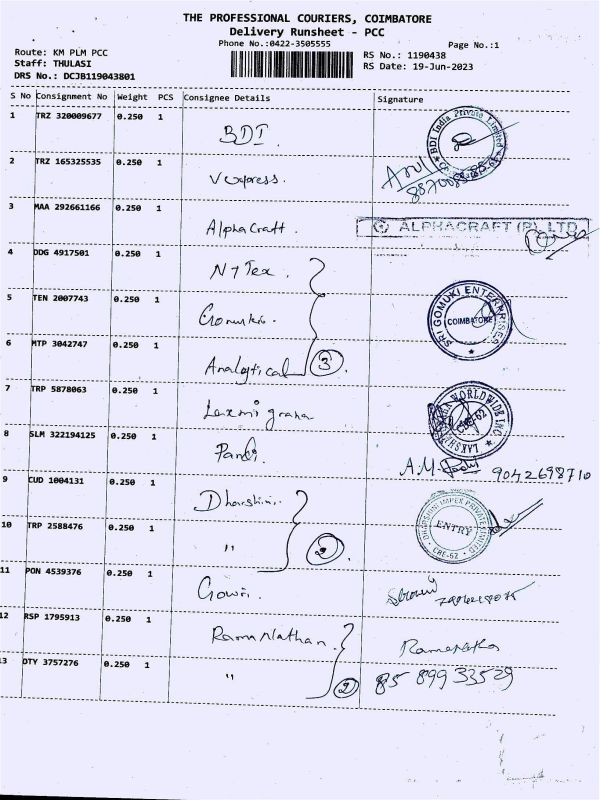 THE PROFESSIONAL COURIERS, COIMBATORE
Delivery Runsheet - PCC
Phone No.:0422-3505555
Page No.:1
Route: KM PLM PCC
Staff: THULASI
DRS No.: DCJB119043801
RS No.: 1190438
RS Date: 19-Jun-2023
S No Consignment No Weight PCS Consignee Details Signature
1 TRZ 320009677 0.250 1 BDI
BDI India Private Limited
2 TRZ 165325535 0.250 1 Vexpress.
Arul
3 MAA 292661166 0.250 1 AlphaCraft.
ALPHACRAFT (P) LTD
4 DDG 4917501 0.250 1 N7Tex.
5 TEN 2007743 0.250 1 Gomuki.
SRI GOMUKI ENTERPRISES
COIMBATORE
6 MTP 3042747 0.250 1 Analytical 3
7 TRP 5878063 0.250 1 Laxmi grana
WORLDWIDE INC
CBE-62
8 SLM 322194125 0.250 1 Pandi.
A.M. 9042698710
9 CUD 1004131 0.250 1 Dharshini.
DHARSHINI IMPEX PRIVATE LIMITED
ENTRY
CBE-62
10 TRP 2588476 0.250 1 " 2
11 PON 4539376 0.250 1 Gowri.
12 RSP 1795913 0.250 1 Rama Nathan.
13 DTY 3757276 0.250 1 " 2
85 899 33529